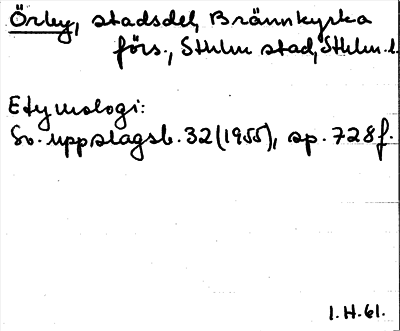 Örby, stadsdel, Brännkyrka
förs., Sthlm stad, Sthlm.l.
Etymologi:
Sv. uppslagsb. 32 (1955), sp. 728f.
1.H.61.